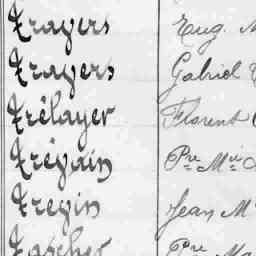 Trayers Eug.
Trayers Gabriel
Trélayer Florent
Trépain Pre Mie
Trepin Jean M
Pre